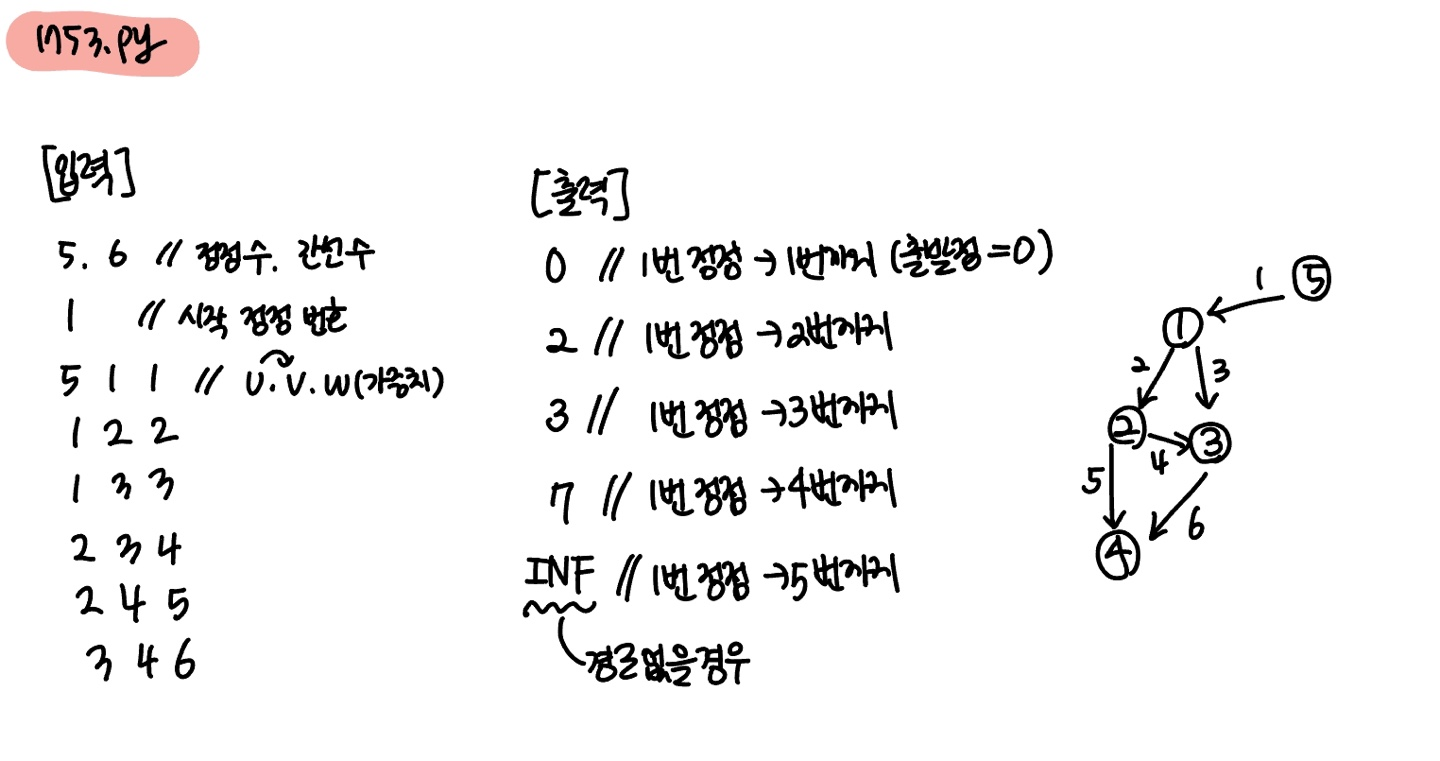 1753.py
[입력]
5. 6 // 정점수. 간선수
1 // 시작 정점 번호
5 1 1 // U. V. W(가중치)
1 2 2
1 3 3
2 3 4
2 4 5
3 4 6
[출력]
0 // 1번 정점 → 1번까지 (출발점=0)
2 // 1번 정점 → 2번까지
3 // 1번 정점 → 3번까지
7 // 1번 정점 → 4번까지
INF // 1번 정점 → 5번까지
경로없을경우
1 5
1
2 3
2 4 3
5 6
4